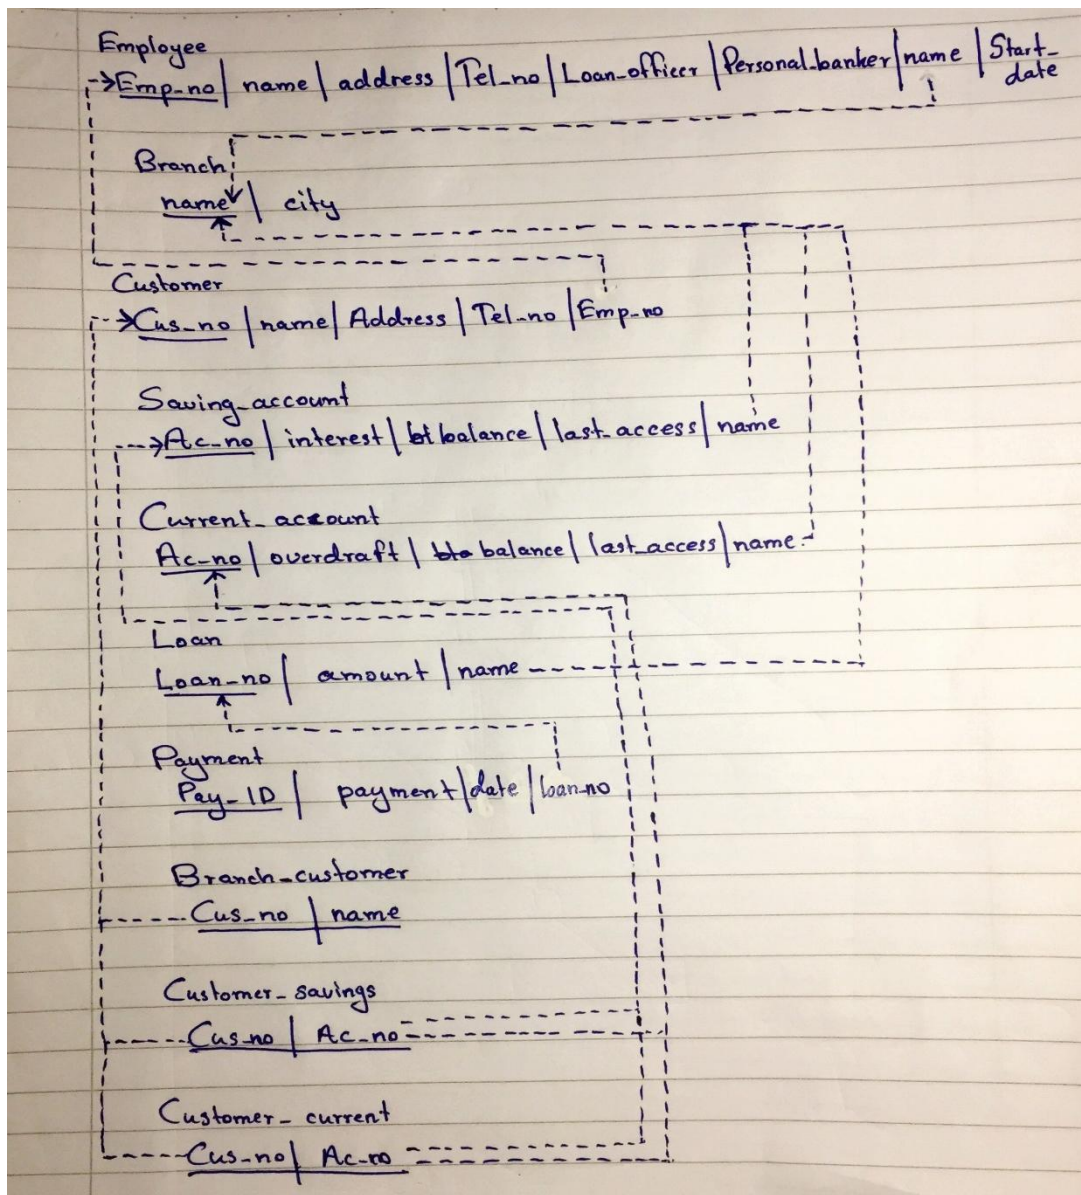 Employee
Emp_no | name | address | Tel_no | Loan_officer | Personal_banker | name | Start_
date
Branch
name | city
Customer
Cus_no | name | Address | Tel_no | Emp_no
Saving_account
Ac_no | interest | balance | last_access | name
Current_account
Ac_no | overdraft | balance | last_access | name
Loan
Loan_no | amount | name
Payment
Pay_ID | payment | date | loan_no
Branch_customer
Cus_no | name
Customer_savings
Cus_no | Ac_no
Customer_current
Cus_no | Ac_no